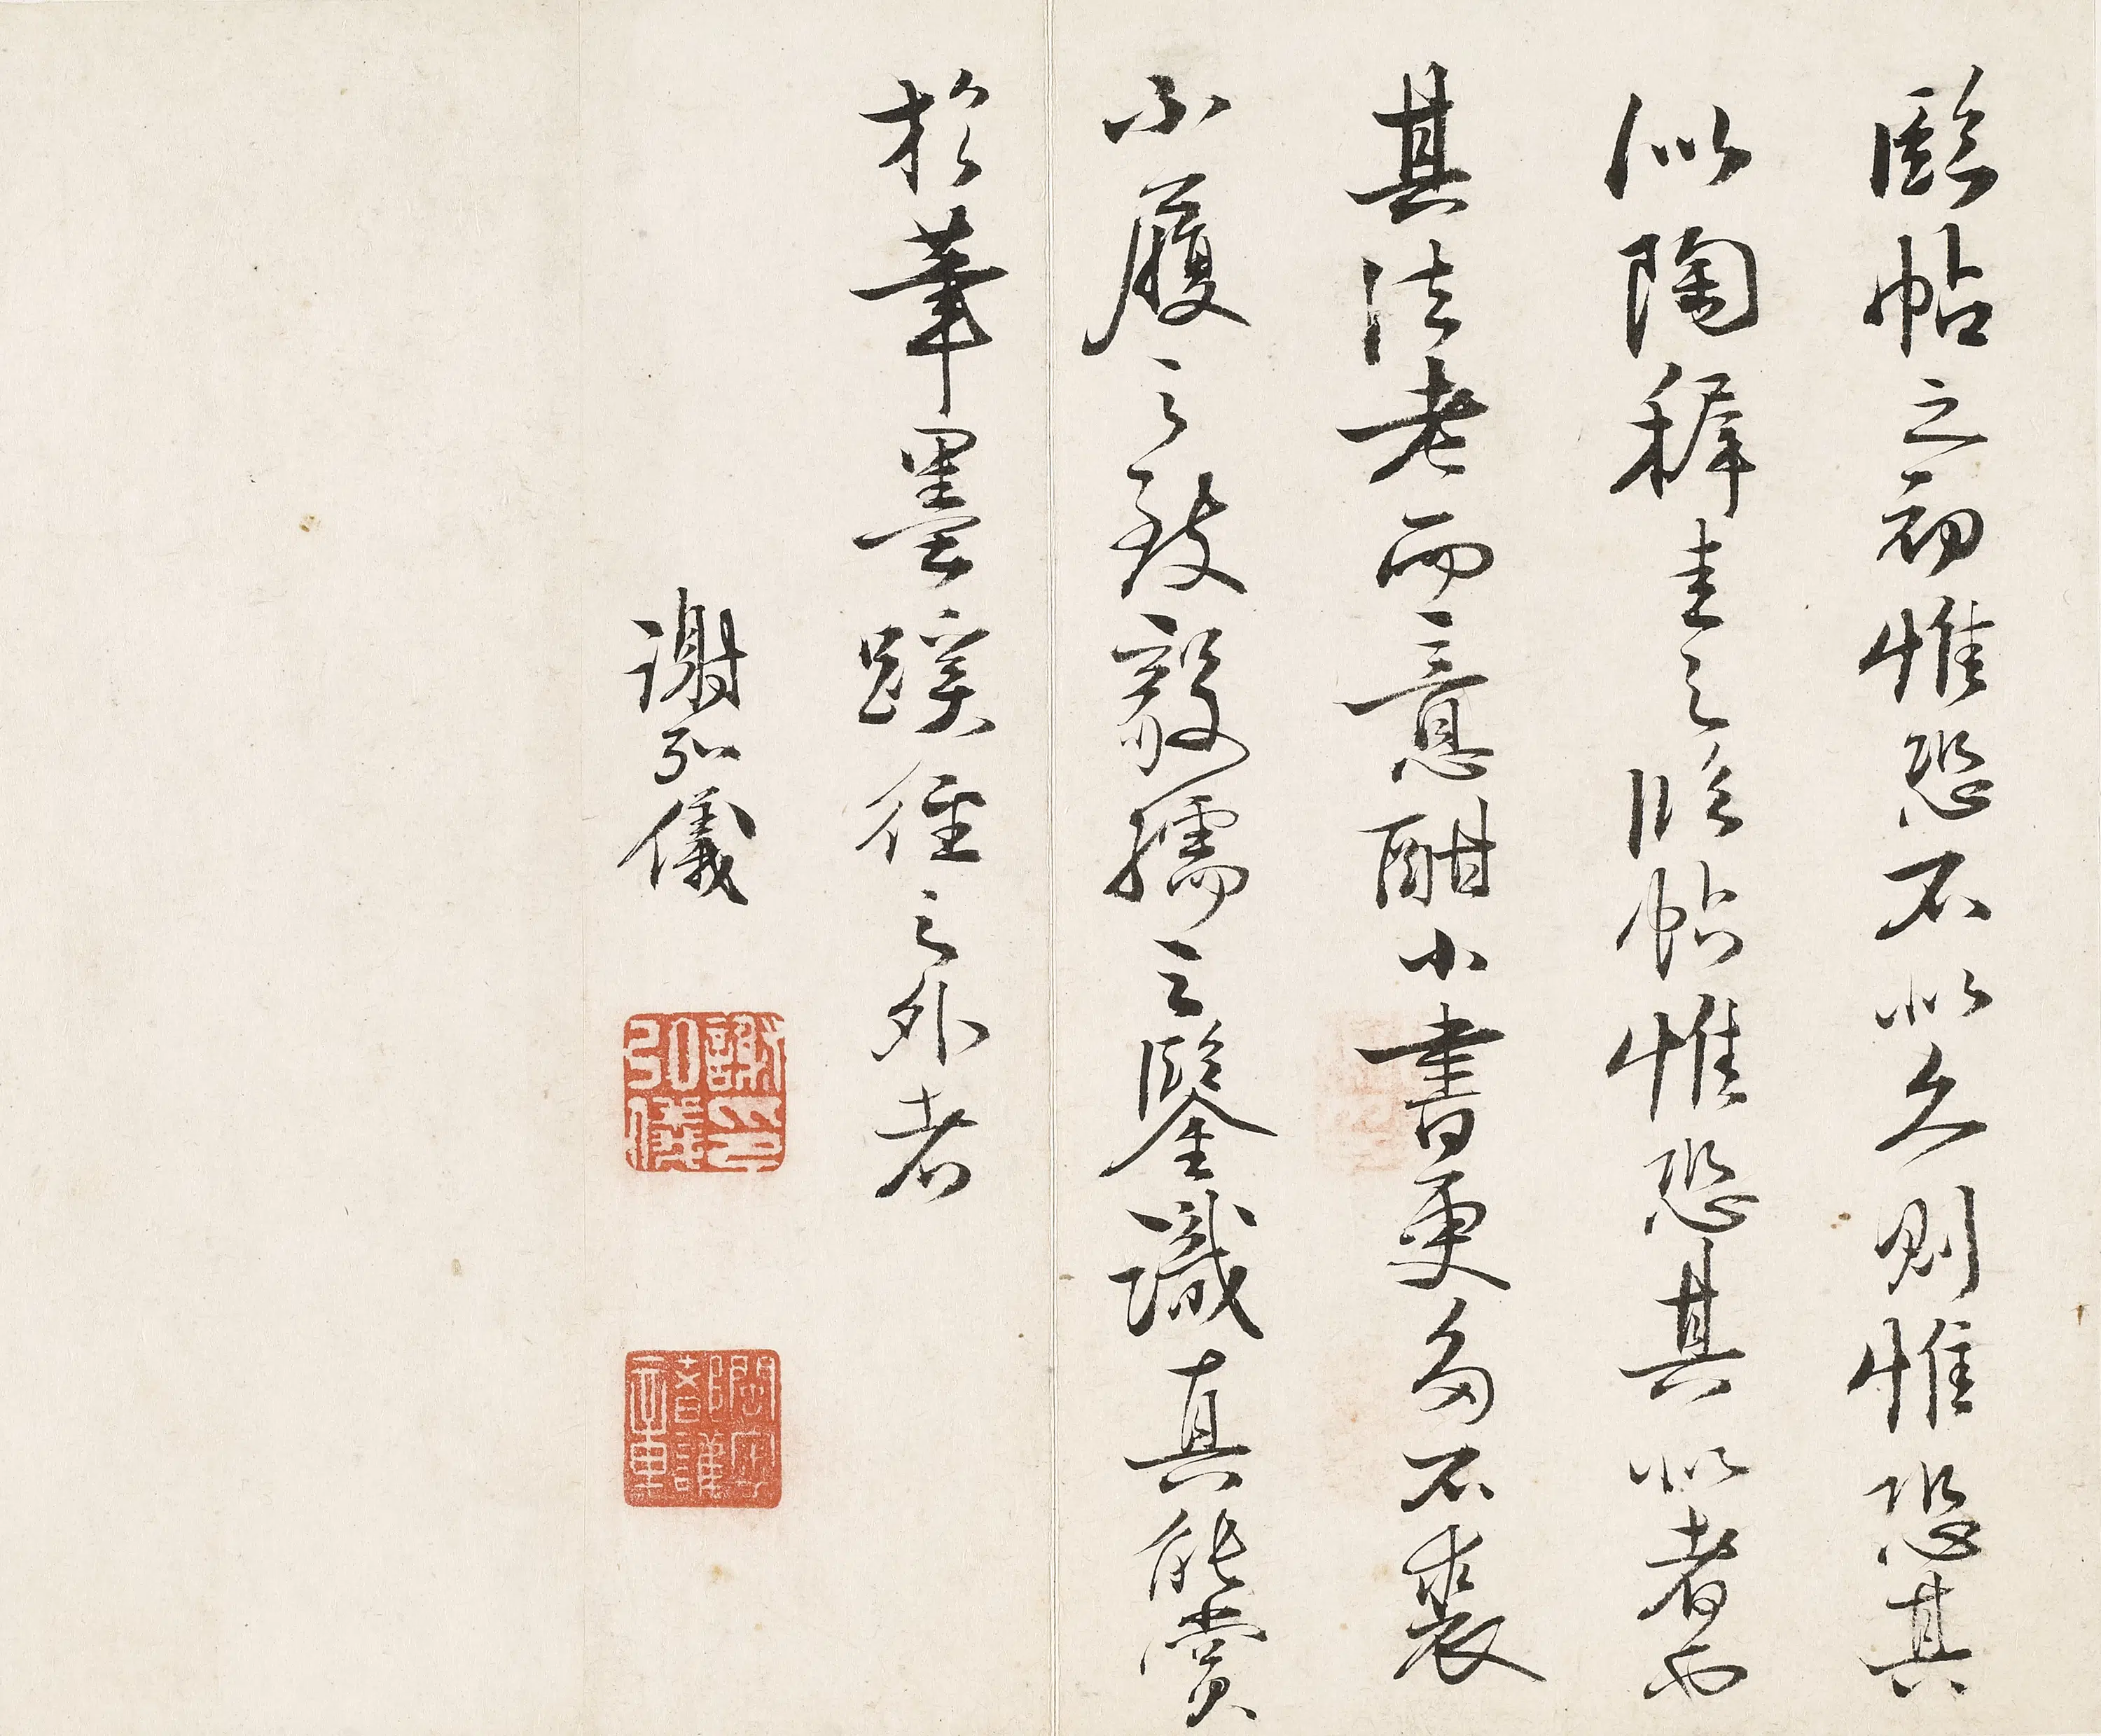 臨帖之初惟恐不似久則惟恐其
似陶稺圭之臨帖惟恐其似者也
其法老而意酣小書更多不衫
不履之致毅孺之鑒識真能賞
於筆墨蹊徑之外者
謝弘儀
謝弘儀印